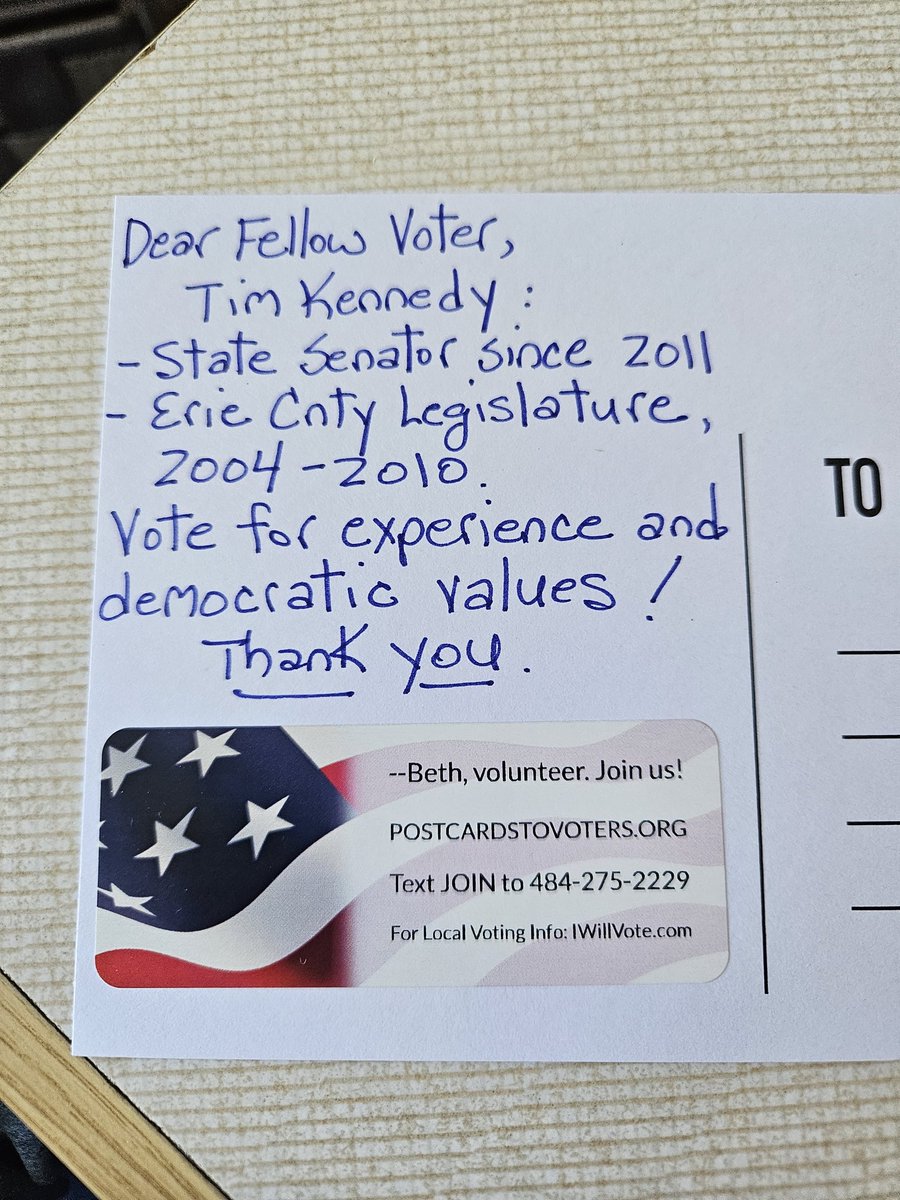 Dear Fellow Voter,
Tim Kennedy :
- State Senator since 2011
- Erie Cnty Legislature,
2004 - 2010.
Vote for experience and
democratic values !
Thank you.
TO
--Beth, volunteer. Join us!
POSTCARDSTOVOTERS.ORG
Text JOIN to 484-275-2229
For Local Voting Info: IWillVote.com